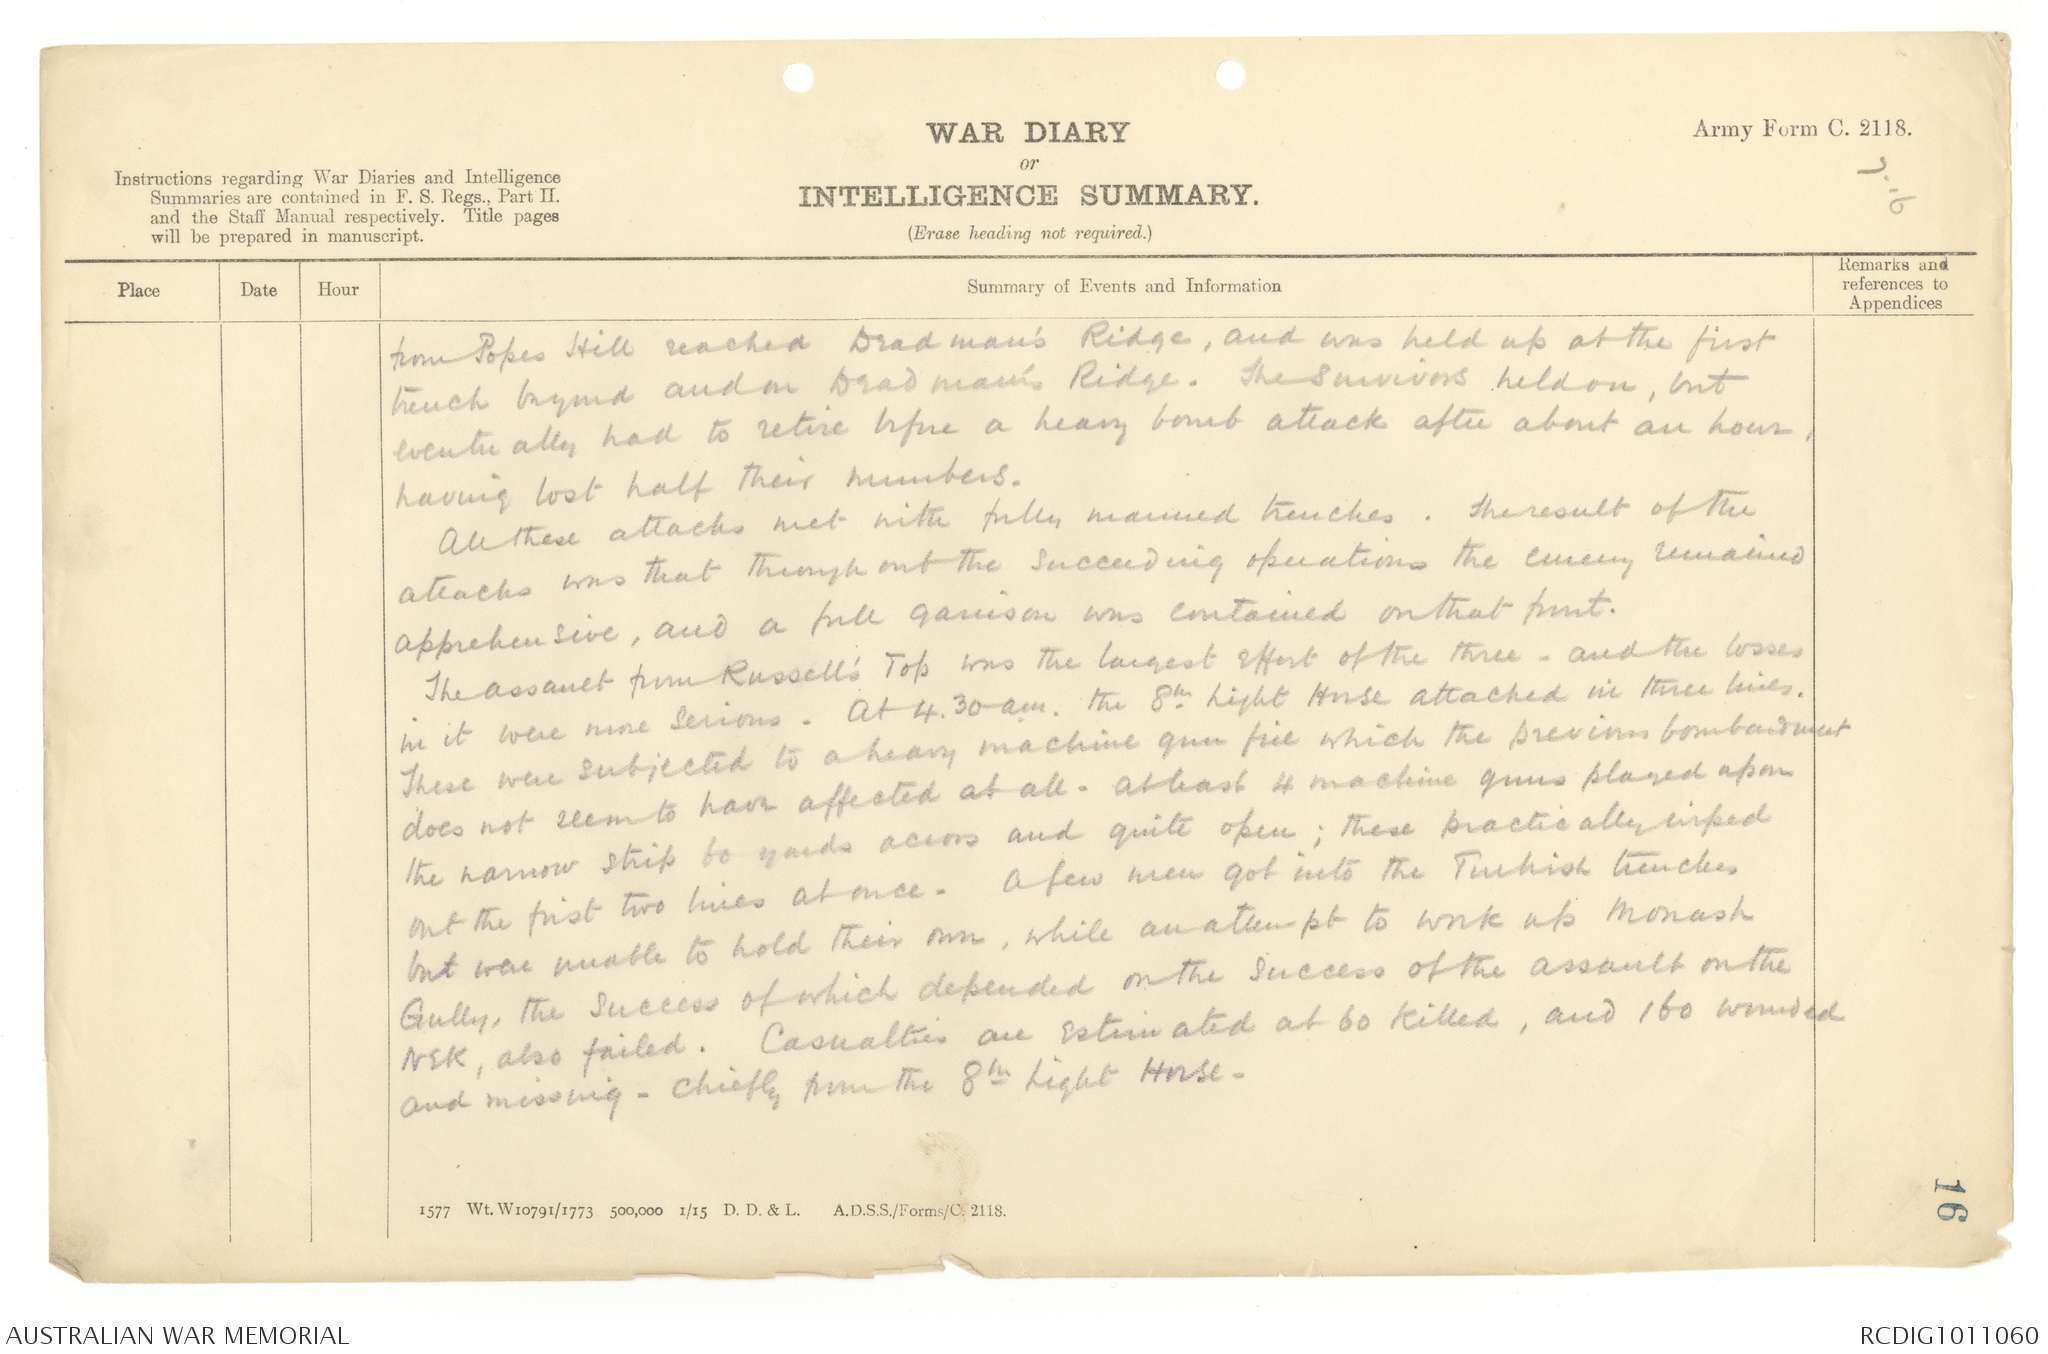 WAR DIARY
or
INTELLIGENCE SUMMARY.
(Erase heading not required.)
Army Form C. 2118.
Instructions regarding War Diaries and Intelligence
Summaries are contained in F. S. Regs., Part II.
and the Staff Manual respectively. Title pages
will be prepared in manuscript.
Place
Date
Hour
Summary of Events and Information
Remarks and
references to
Appendices
from Popes Hill reached Deadman's Ridge, and was held up at the first
trench beyond and on Deadman's Ridge. The survivors held on, but
eventually had to retire before a heavy bomb attack after about an hour,
having lost half their numbers.
All these attacks met with fully manned trenches. The result of the
attacks was that throughout the succeeding operations the enemy remained
apprehensive, and a full garrison was contained on that front.
The assault from Russell's Top was the largest effort of the three - and the losses
in it were more serious. At 4.30 am. the 8th Light Horse attacked in three lines.
These were subjected to a heavy machine gun fire which the previous bombardment
does not seem to have affected at all - at least 4 machine guns played upon
the narrow strip 60 yards across and quite open; these practically wiped
out the first two lines at once. A few men got into the Turkish trenches
but were unable to hold their own, while an attempt to work up Monash
Gully, the success of which depended on the success of the assault on the
NEK, also failed. Casualties are estimated at 60 killed, and 160 wounded
and missing - chiefly from the 8th Light Horse -
1577 Wt. W10791/1773 500,000 1/15 D. D. & L. A.D.S.S./Forms/C. 2118.
16
AUSTRALIAN WAR MEMORIAL
RCDIG1011060